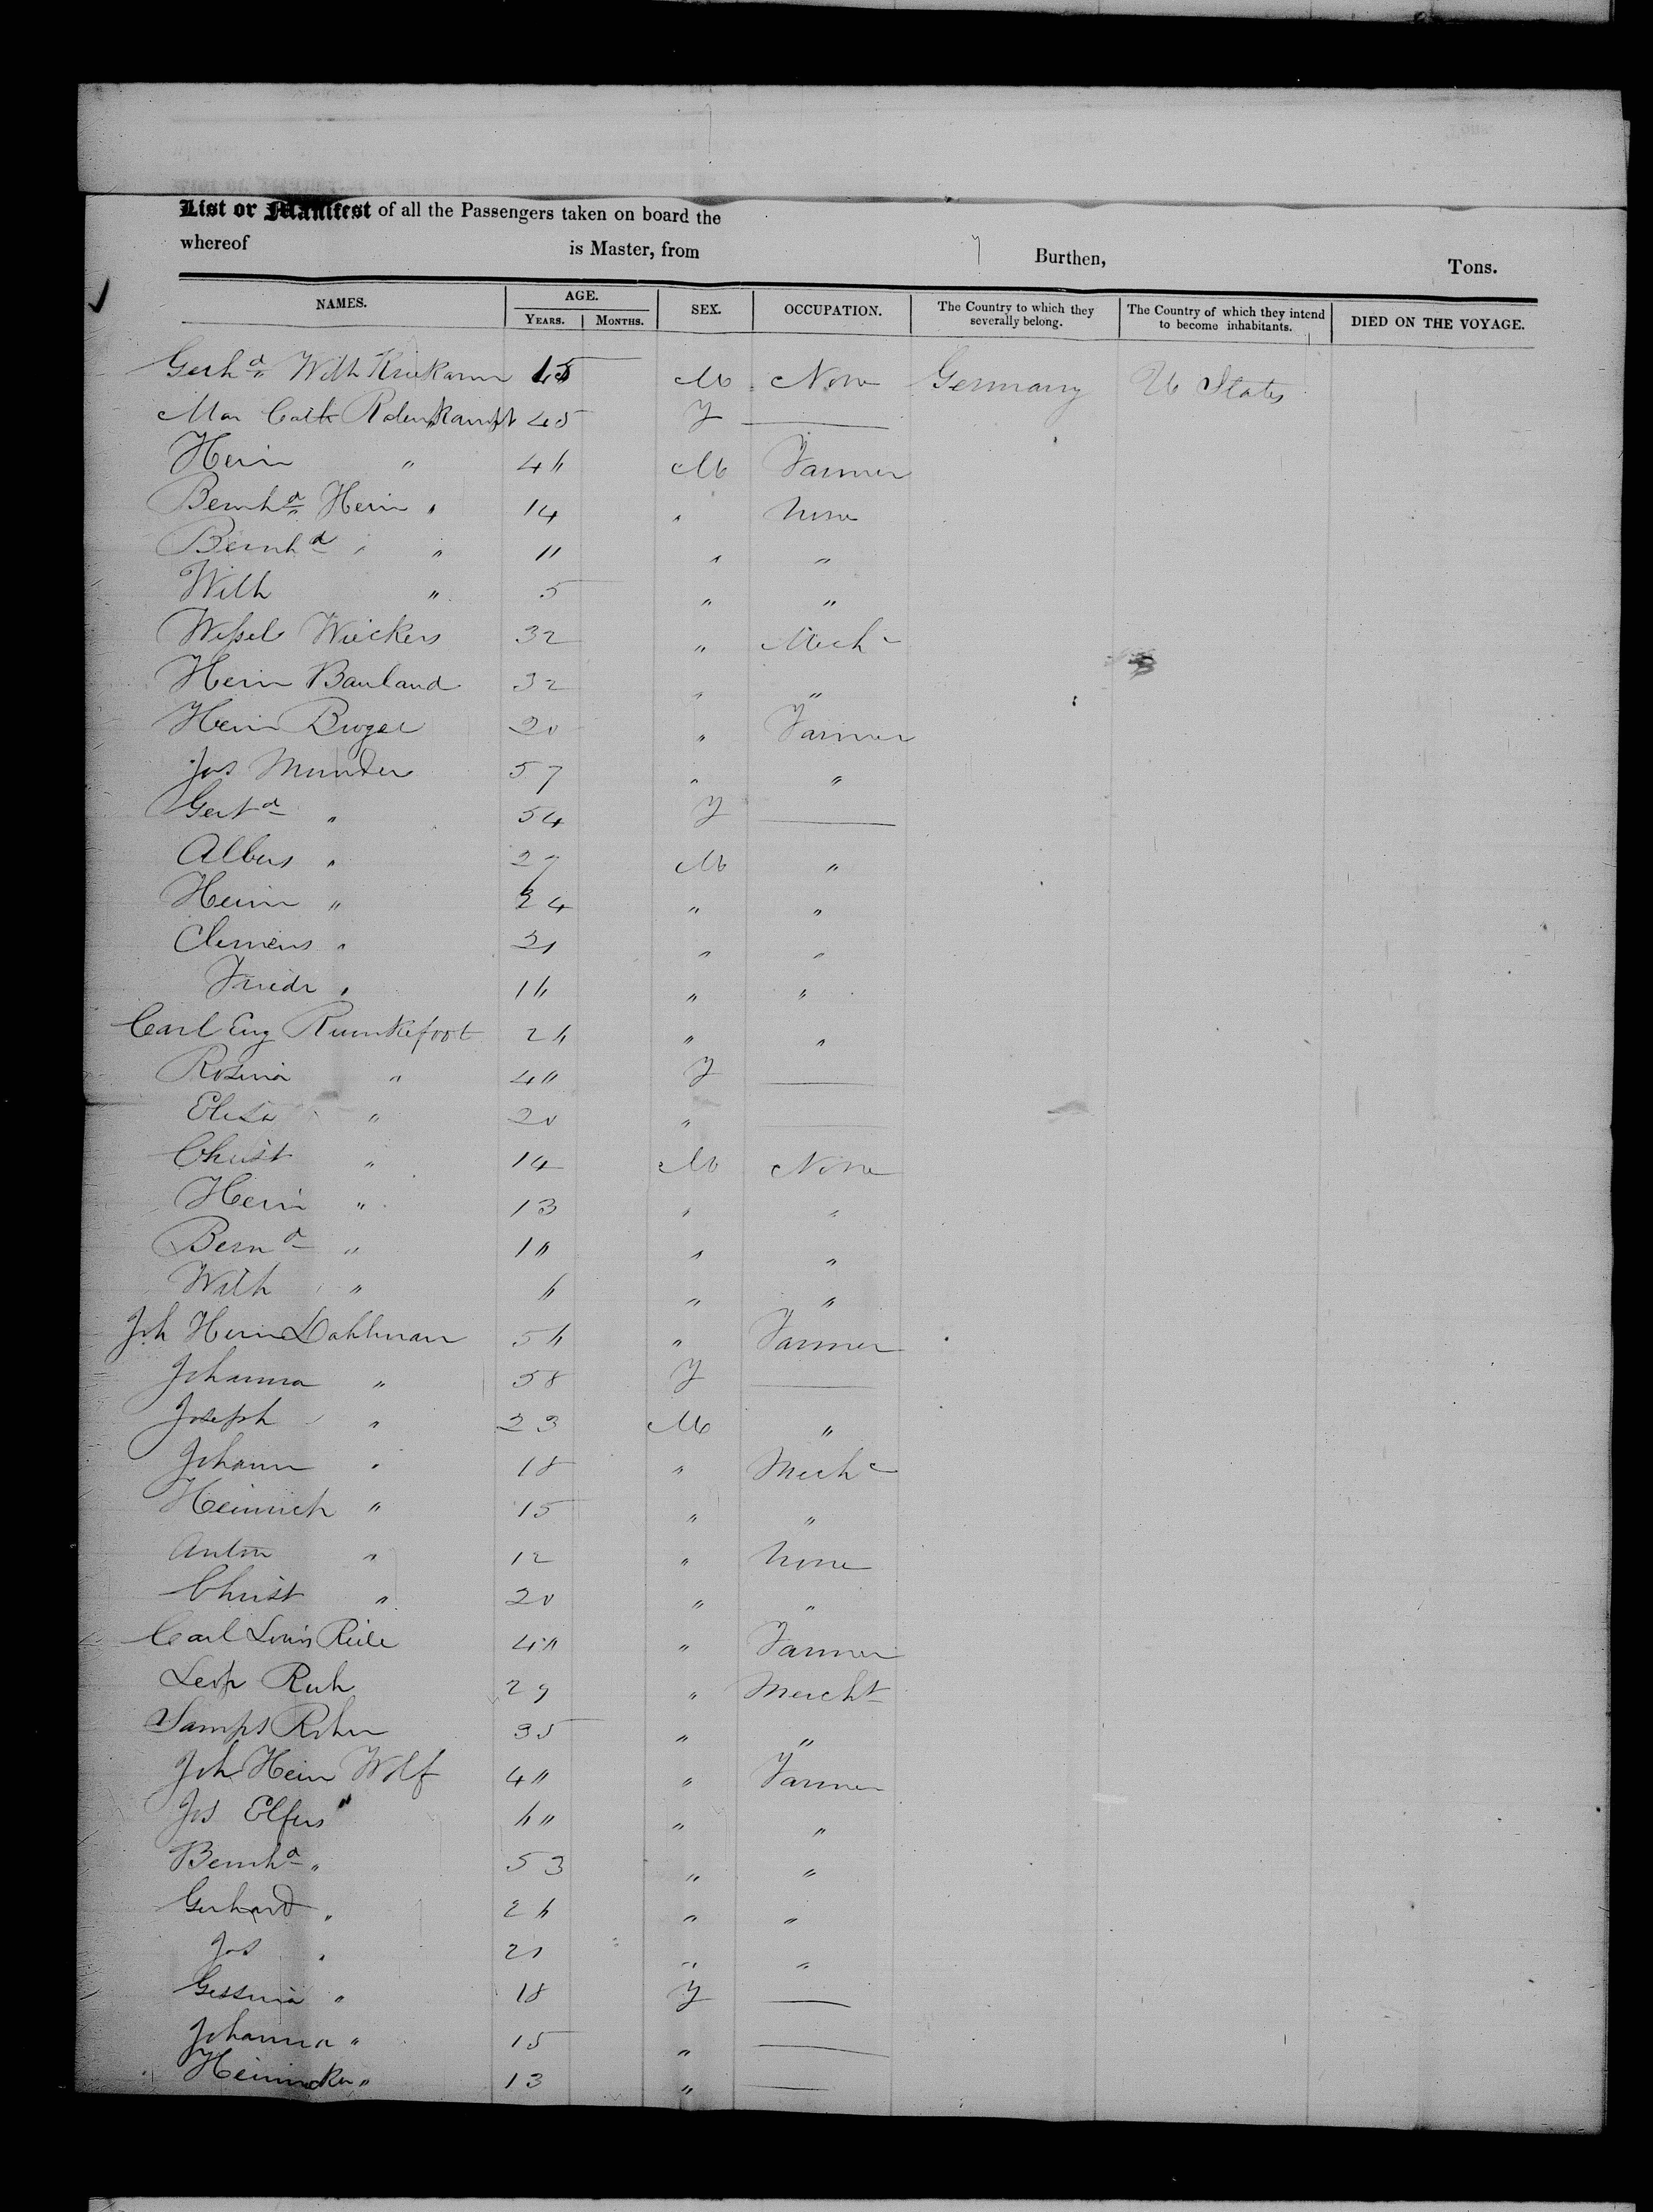 List or Manifest of all the Passengers taken on board the
whereof is Master, from Burthen, Tons.
NAMES. AGE. YEARS. MONTHS. SEX. OCCUPATION. The Country to which they severally belong. The Country of which they intend to become inhabitants. DIED ON THE VOYAGE.
Gerhd Wilh 15 M None Germany U States
Mar Cath 45 F —
Heinr " 46 M Farmer
Bernhd Heinr " 14 " None
Bernhd " " 11 " "
Wilh " 5 " "
Weßel Wückers 32 " Mechc
Heinr Bauland 32 " "
Heinr 20 " Farmer
Jos Munder 57 " "
Gertd " 54 F —
Albers " 27 M "
Heinr " 24 " "
Clemens " 21 " "
Friedr " 16 " "
Carl Eug Rumkefoot 26 " "
Rosina " 40 F —
Elisa " 20 " —
Christ " 14 M None
Heinr " 13 " "
Bernd " 10 " "
" 6 " "
Joh Heinr Dahlman 56 " Farmer
Johanna " 58 F —
Joseph " 23 M "
Johann " 18 " Mechc
Heinrich " 15 " "
Anton " 12 " None
Christ " 20 " "
Carl Louis 40 " Farmer
Leop 29 " Mercht
Samps 35 " "
Joh Hein Wolf 40 " Farmer
Jos Elfers " 60 " "
Bernhd " 53 " "
Gerhard " 26 " "
Jos " 21 " "
Gessina " 18 F —
Johanna " 15 " —
" 13 " —